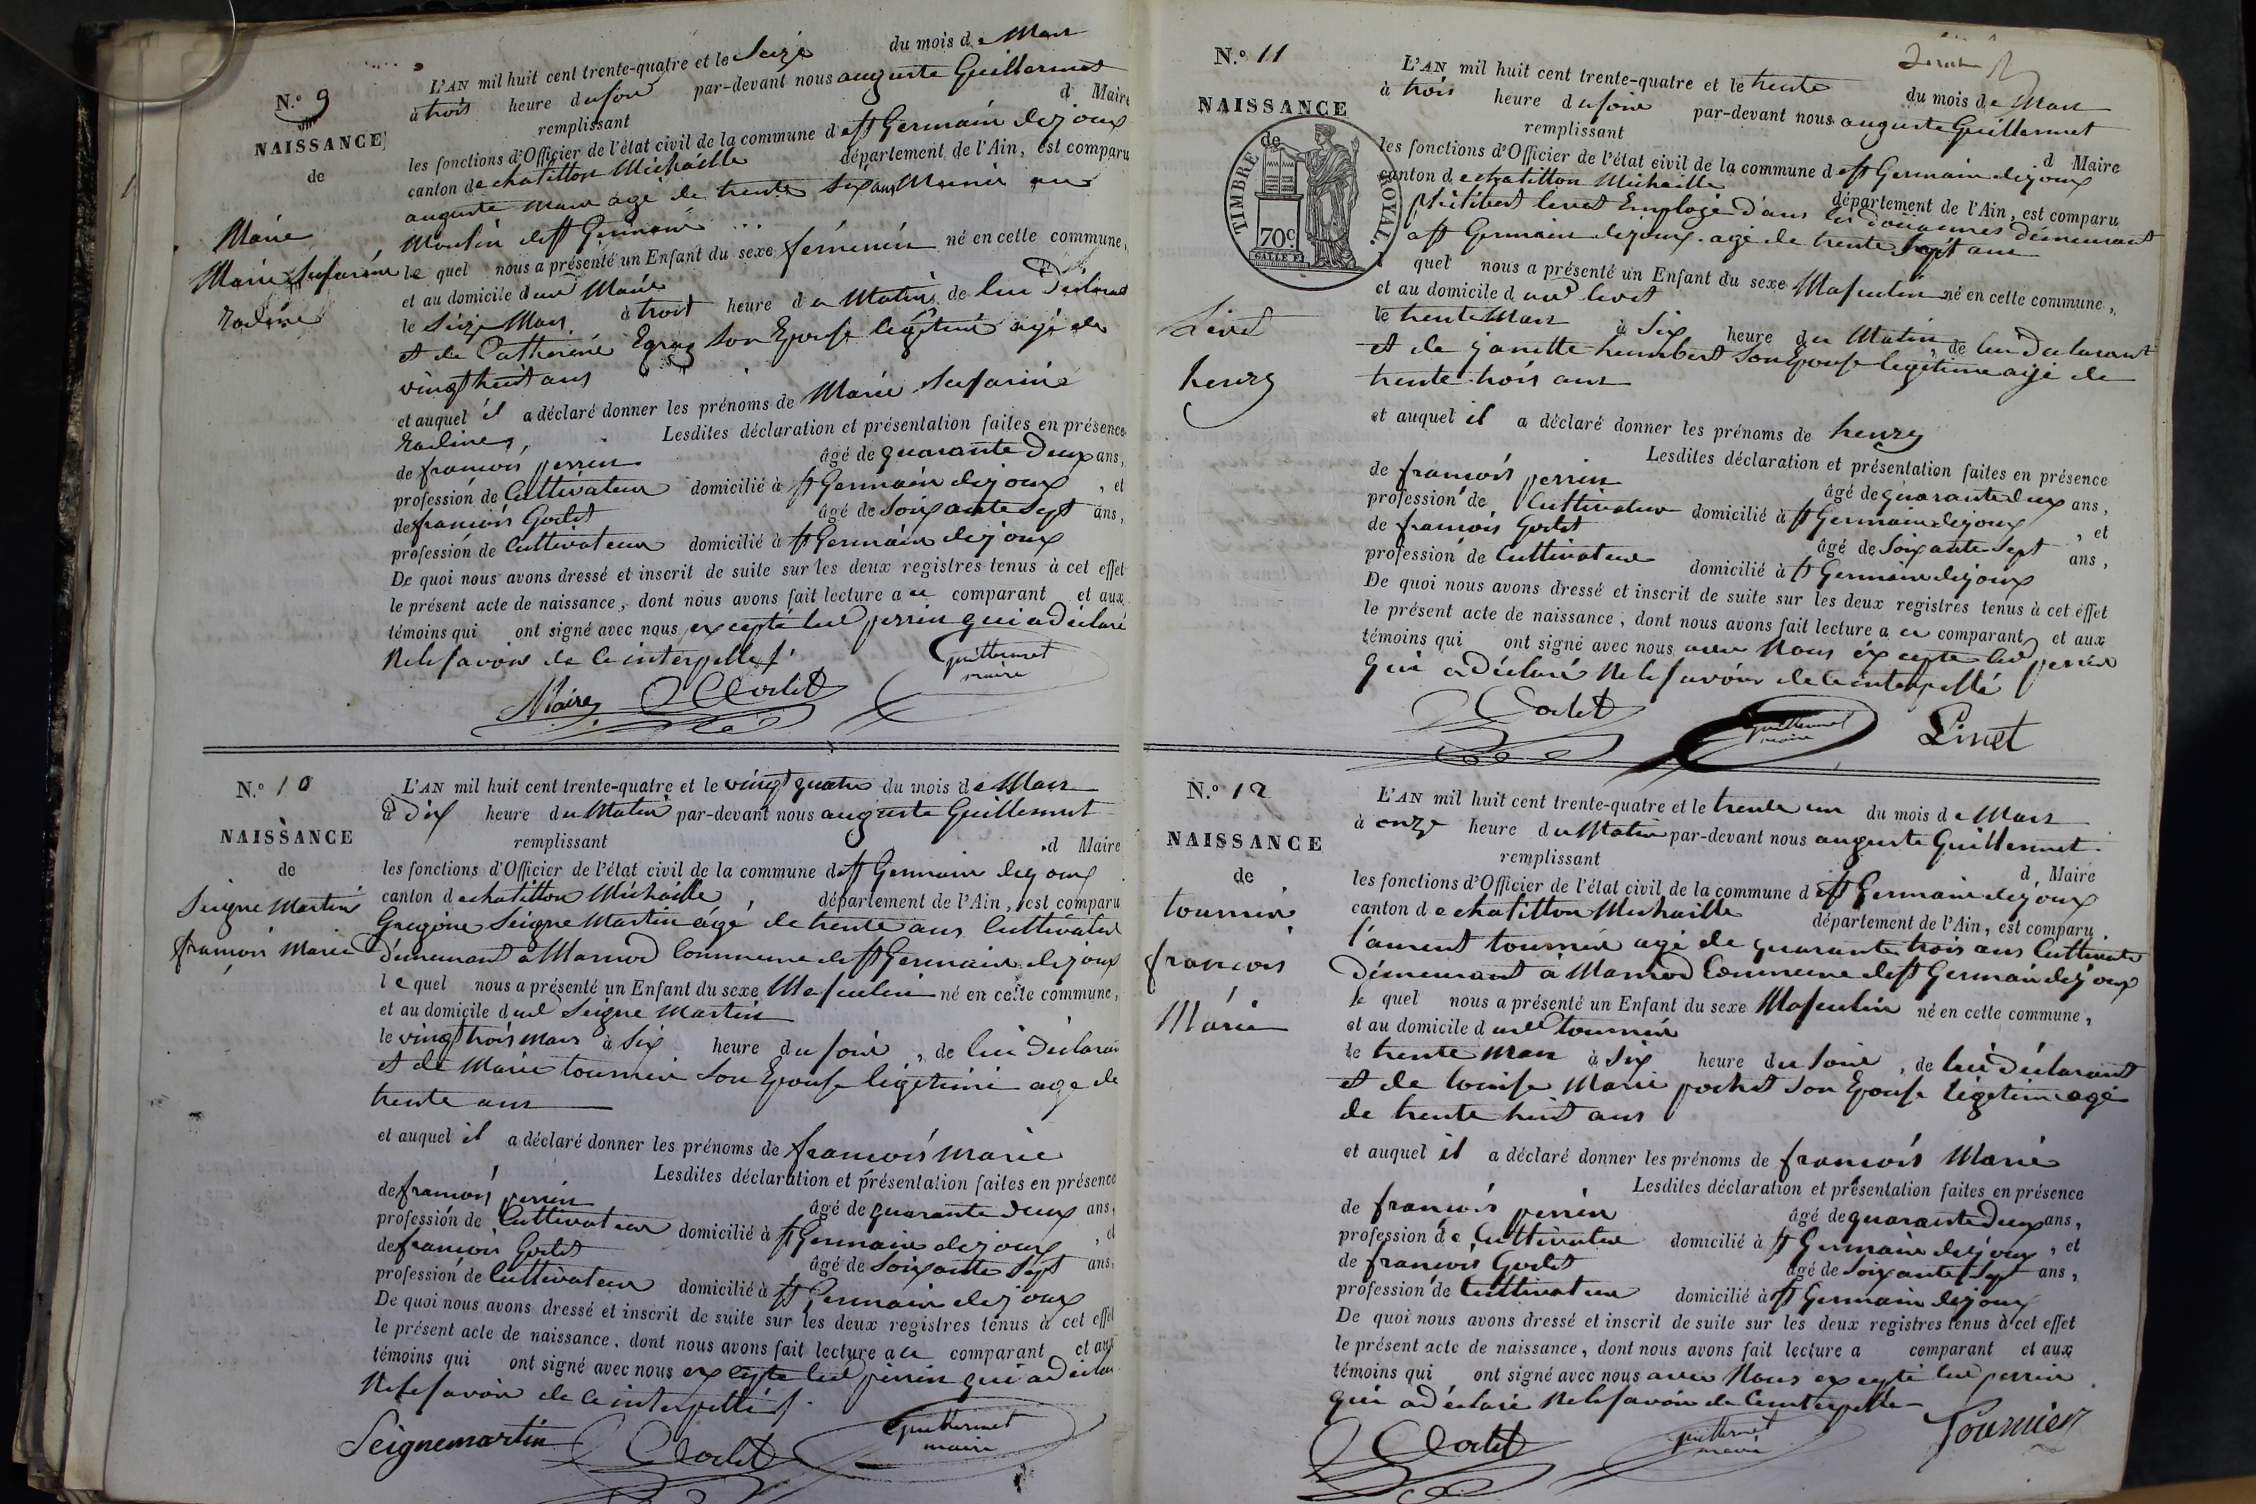 N.º 9
NAISSANCE
de
Marie
Marie Sufarine
L'AN mil huit cent trente-quatre et le Seize du mois de Mars
à trois heure du soir par-devant nous auguste Guillermet
d Maire
remplissant
les fonctions d'Officier de l'état civil de la commune de st Germain de joux
canton de chatillon Michaille département de l'Ain, est comparu
auguste Maire agé de trente six ans
Moulin de st Germain
le quel nous a présenté un Enfant du sexe féminin né en cette commune,
et au domicile dud Maire
le Seize Mars à trois heure du Matin de lui Déclarant
et de Catherine son Epouse légitime agé de
vingt huit ans
et auquel il a déclaré donner les prénoms de Marie Sufarine
Lesdites déclaration et présentation faites en présence
de francois perrin âgé de quarante deux ans,
profession de Cultivateur domicilié à st Germain de joux, et
de francois Godet âgé de soixante sept ans,
profession de Cultivateur domicilié à st Germain de joux
De quoi nous avons dressé et inscrit de suite sur les deux registres tenus à cet effet
le présent acte de naissance, dont nous avons fait lecture au comparant et aux
témoins qui ont signé avec nous excepté led perrin qui a déclaré
Ne le savoir de ce interpellé
Maire Godet Guillermet
maire
N.º 10
NAISSANCE
de
Seigne Martin
francois Marie
L'AN mil huit cent trente-quatre et le vingt quatre du mois de Mars
à Dix heure du Matin par-devant nous auguste Guillermet
remplissant d Maire
les fonctions d'Officier de l'état civil de la commune de st Germain de joux
canton de chatillon Michaille, département de l'Ain, est comparu
Gregoire Seigne Martin agé de trente ans Cultivateur
Demeurant à Marnod Commune de st Germain de joux
le quel nous a présenté un Enfant du sexe Masculin né en cette commune,
et au domicile dud Seigne Martin
le vingt trois mars à six heure du soir, de lui Déclarant
et de Marie tournier son Epouse légitime age de
trente ans
et auquel il a déclaré donner les prénoms de francois Marie
Lesdites déclaration et présentation faites en présence
de francois perrin âgé de quarante deux ans,
profession de Cultivateur domicilié à st Germain de joux, et
de francois Godet âgé de soixante sept ans,
profession de Cultivateur domicilié à st Germain de joux
De quoi nous avons dressé et inscrit de suite sur les deux registres tenus à cet effet
le présent acte de naissance, dont nous avons fait lecture au comparant et aux
témoins qui ont signé avec nous excepte led perrin qui a déclaré
Ne le savoir de ce interpellé
Seignemartin Godet Guillermet
maire
N.º 11
NAISSANCE
de
TIMBRE ROYAL.
70c
Livet
henry
L'AN mil huit cent trente-quatre et le trente du mois de Mars
à trois heure du soir par-devant nous auguste Guillermet
remplissant d Maire
les fonctions d'Officier de l'état civil de la commune de st Germain de joux
canton de chatillon Michaille département de l'Ain, est comparu
philibert livet Employé dans les douannes démeurant
a st Germain de joux agé de trente sept ans
quel nous a présenté un Enfant du sexe Masculin né en cette commune,
et au domicile dud livet
le trente Mars à six heure du Matin, de lui Declarant
et de janette humbert son Epouse legitime agé de
trente trois ans
et auquel il a déclaré donner les prénoms de henry
Lesdites déclaration et présentation faites en présence
de francois perrin âgé de quarante deux ans,
profession de Cultivateur domicilié à st Germain de joux, et
de francois Godet âgé de soixante sept ans,
profession de Cultivateur domicilié à st Germain de joux
De quoi nous avons dressé et inscrit de suite sur les deux registres tenus à cet effet
le présent acte de naissance, dont nous avons fait lecture au comparant et aux
témoins qui ont signé avec nous avec Nous excepte led perrin
qui a déclaré Ne le savoir de ce interpellé
Godet Guillermet Livet
maire
N.º 12
NAISSANCE
de
tournier
francois
Marie
L'AN mil huit cent trente-quatre et le trente un du mois de Mars
à onze heure du Matin par-devant nous auguste Guillermet
remplissant d Maire
les fonctions d'Officier de l'état civil de la commune de st Germain de joux
canton de chatillon Michaille département de l'Ain, est comparu
laurent tournier agé de quarante trois ans Cultivateur
Démeurant à Marnod Commune de st Germain de joux
le quel nous a présenté un Enfant du sexe Masculin né en cette commune,
et au domicile dud tournier
le trente Mars à six heure du soir, de lui Déclarant
et de louise Marie pochet son Epouse légitime agé
de trente huit ans
et auquel il a déclaré donner les prénoms de francois Marie
Lesdites déclaration et présentation faites en présence
de francois perrin âgé de quarante deux ans,
profession de Cultivateur domicilié à st Germain de joux, et
de francois Godet âgé de soixante sept ans,
profession de Cultivateur domicilié à st Germain de joux
De quoi nous avons dressé et inscrit de suite sur les deux registres tenus à cet effet
le présent acte de naissance, dont nous avons fait lecture a comparant et aux
témoins qui ont signé avec nous avec Nous excepté led perrin
qui a déclaré Ne le savoir de Ce interpellé
Godet Guillermet Tournier
maire